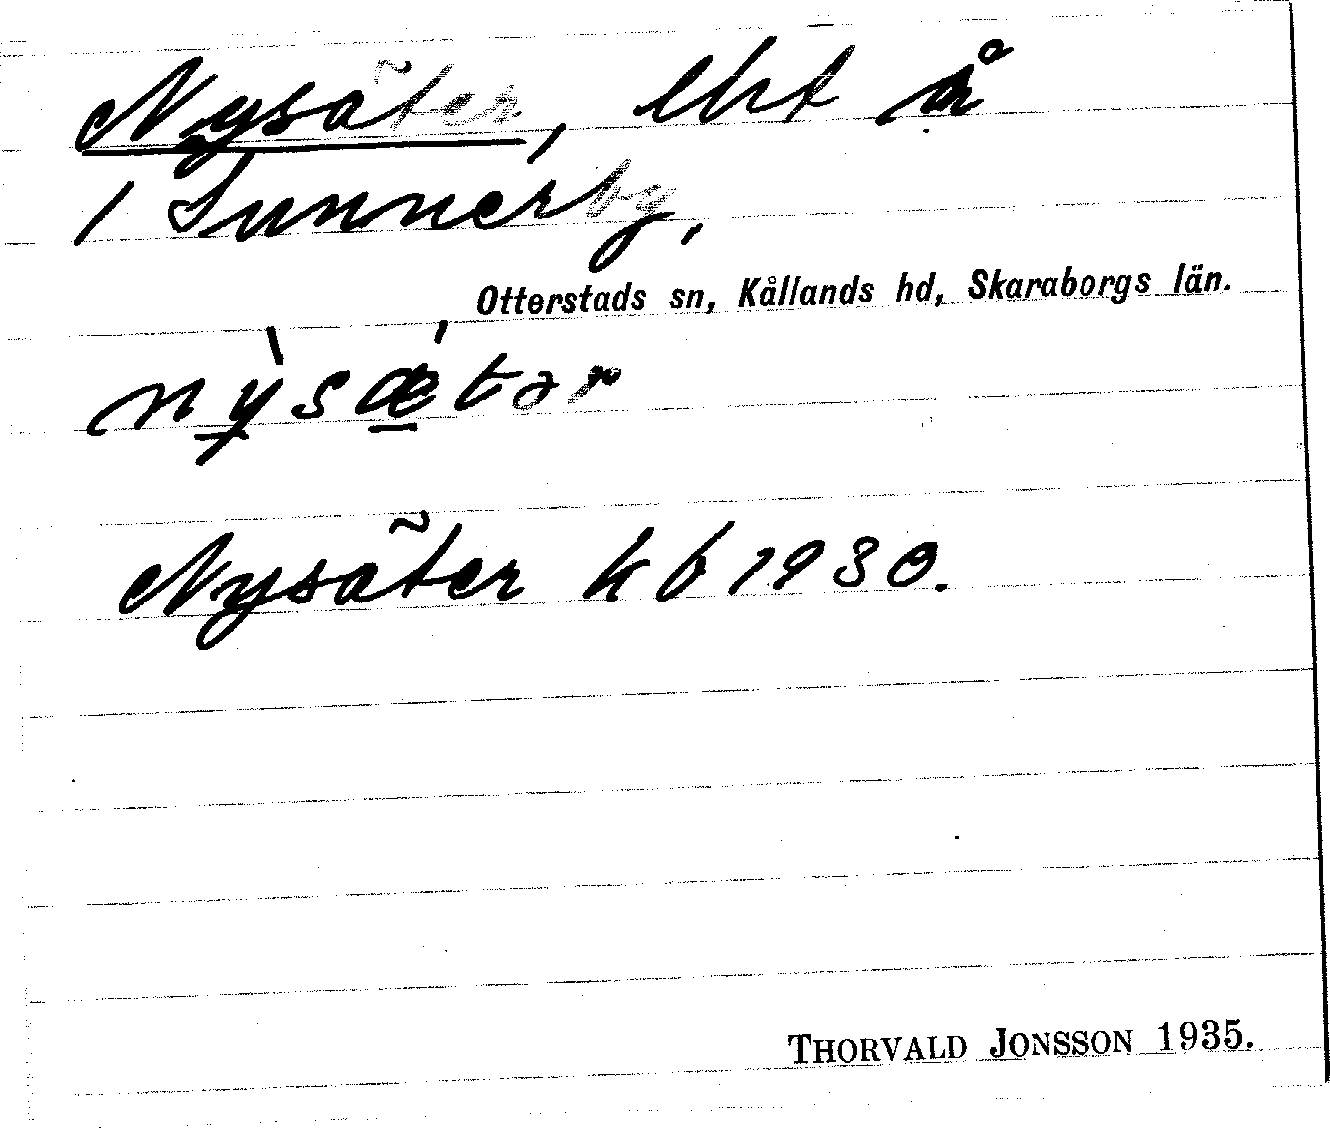 Nysäter, lht å
1 Sunnerby,
Otterstads sn, Kållands hd, Skaraborgs län.
nỳsæ̀tər
Nysäter kb 1930.
THORVALD JONSSON 1935.